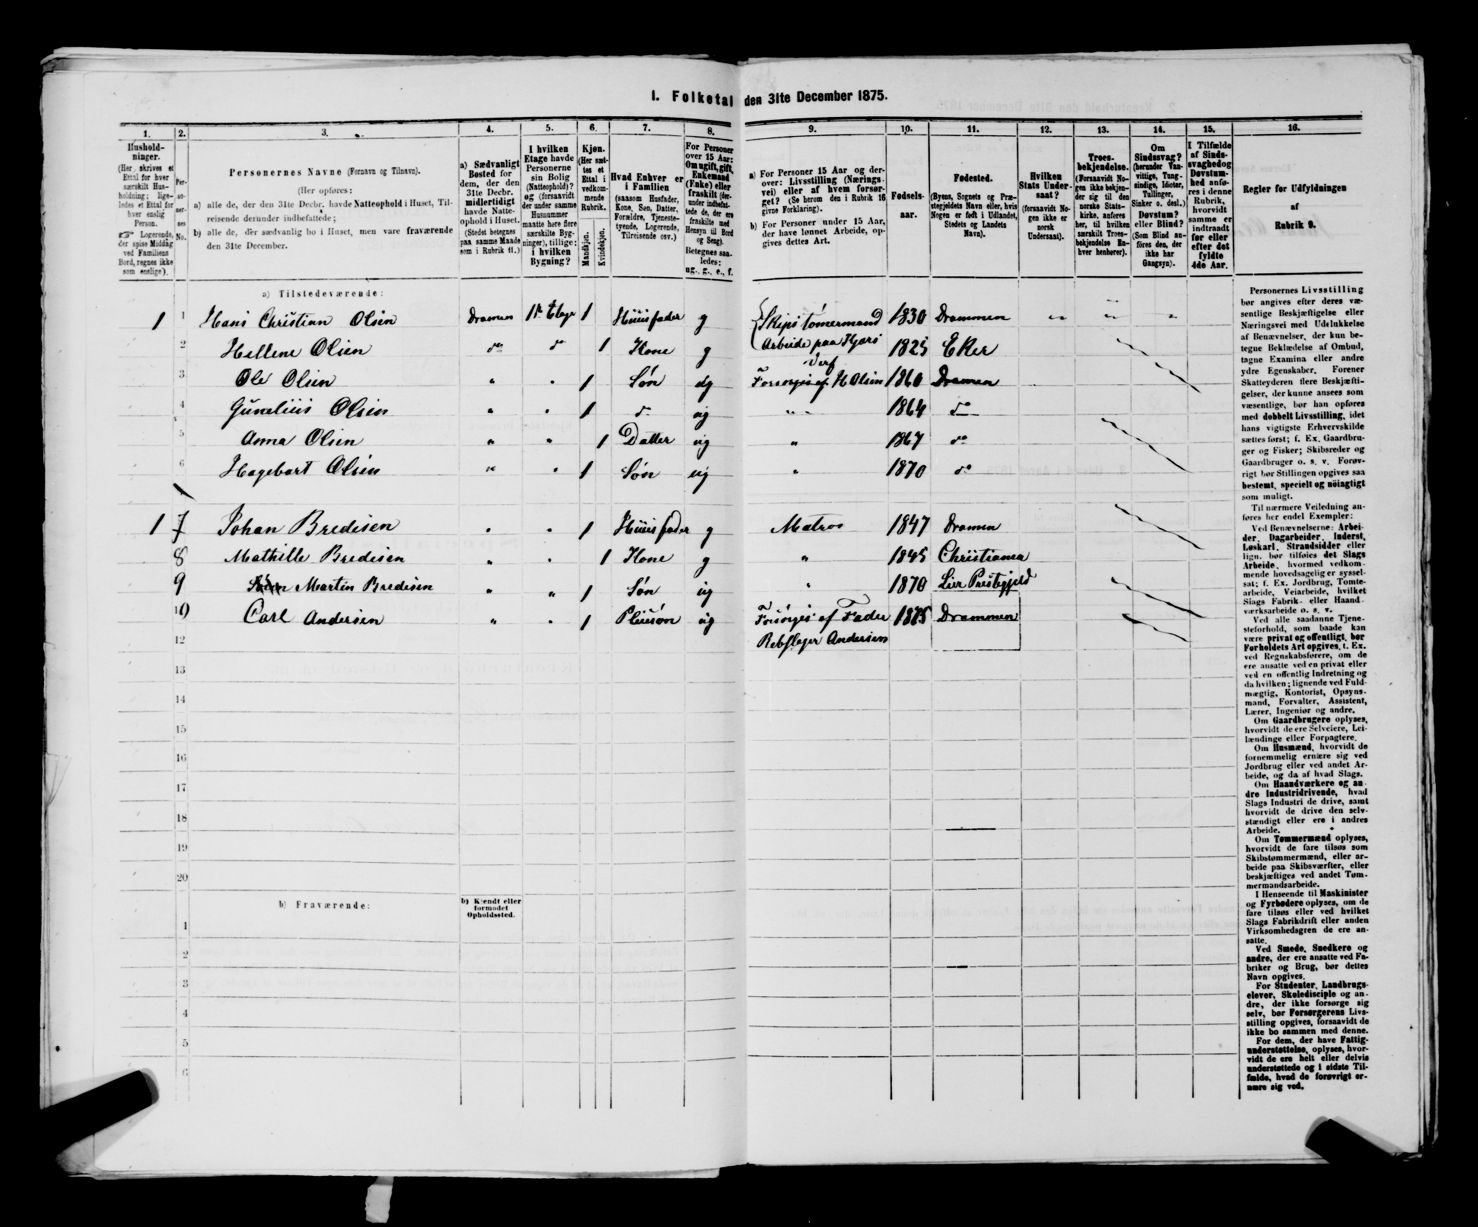 1. Folketal den 31te December 1875.
1. 2. 3. 4. 5. 6. 7. 8. 9. 10. 11. 12. 13. 14. 15. 16.
Hushold-
ninger.
(Her skrives et
Ettal for hver
særskilt Hus-
holdning; lige-
ledes et Ettal for
hver enslig
Person.
Logerende,
der spise Middag
ved Familiens
Bord, regnes ikke
som enslige).
Per-
so-
ner-
nes
No.
Personernes Navne (Fornavn og Tilnavn).
(Her opføres:
a) alle de, der den 31te Decbr. havde Natteophold i Huset, Til-
reisende derunder indbefattede;
b) alle de, der sædvanlig bo i Huset, men vare fraværende
den 31te December.
a) Sædvanligt
Bosted for
dem, der den
31te Decbr.
midlertidigt
havde Natte-
ophold i Huset.
(Stedet betegnes
paa samme Maade
som i Rubrik 11.)
I hvilken
Etage havde
Personerne
sin Bolig
(Natteophold)?
og (forsaavidt
der under samme
Husnummer
maatte høre flere
særskilte Byg-
ninger), tillige:
i hvilken
Bygning?
Kjøn.
(Her sæt-
tes et
Ettal i
vedkom-
mende
Rubrik.
Mandkjøn.
Kvindekjøn.
Hvad Enhver er
i Familien
(saasom Husfader,
Kone, Søn, Datter,
Forældre, Tjeneste-
tyende, Logerende,
Tilreisende osv.)
For Personer
over 15 Aar:
Om ugift, gift,
Enkemand
(Enke) eller
fraskilt (der-
under indbefat-
tede de, der ere
fraskilte med
Hensyn til Bord
og Seng).
Betegnes saa-
ledes:
ug., g., e., f.
a) For Personer 15 Aar og der-
over: Livsstilling (Nærings-
vei) eller af hvem forsør-
get? (Se herom den i Rubrik 16
givne Forklaring).
b) For Personer under 15 Aar,
der have lønnet Arbeide, op-
gives dettes Art.
Fødsels-
aar.
Fødested.
(Byens, Sognets og Præ-
stegjeldets Navn eller, hvis
Nogen er født i Udlandet,
Stedets og Landets
Navn).
Hvilken
Stats Under-
saat?
(forsaavidt No-
gen ikke er
norsk
Undersaat).
Troes-
bekjendelse.
(Forsaavidt No-
gen ikke bekjen-
der sig til den
norske Stats-
kirke, anføres
her, til hvilken
særskilt Troes-
bekjendelse En-
hver henhører).
Om
Sindssvag?
(herunder Van-
vittige, Tung-
sindige, Idioter,
Tullinger,
Sinker o. desl.)
Døvstum?
eller Blind?
(Som Blind an-
føres den, der
ikke har
Gangsyn).
I Tilfælde
af Sinds-
svaghed og
Døvstum-
hed anfø-
res i denne
Rubrik,
hvorvidt
samme er
indtraadt
før eller
efter det
fyldte
4de Aar.
Regler for Udfyldningen
af
Rubrik 9.
a) Tilstedeværende:
1 1 Hans Christian Olsen Dramen 1ste Etage 1 Huusfader g Skips tømermand 1830 Drammen
2 Hellene Olsen do do 1 Kone g Arbeide paa Kjørs Verf 1825 Eker
3 Ole Olsen " " 1 Søn ug Forsørges af H Olsen 1860 Drammen
4 Gunelius Olsen " " 1 do ug " 1864 do
5 Anna Olsen " " 1 Datter ug " 1867 do
6 Hagebart Olsen " " 1 Søn ug " 1870 do
1 7 Johan Bredesen " " 1 Huusfader g Matros 1847 Dramen
8 Mathille Bredesen " " 1 Kone g " 1845 Christiania
9 Martin Bredesen " " 1 Søn ug " 1870 Lier Prestegjeld
10 Carl Andersen " " 1 Pleiesøn ug Forsørges af Fader 1875 Drammen
12 Rebslager Andersen
13
14
15
16
17
18
19
20
b) Fraværende:
b) Kjendt eller
formodet
Opholdssted.
1
2
3
4
5
6
Personernes Livsstilling
bør angives efter deres væ-
sentlige Beskjæftigelse eller
Næringsvei med Udelukkelse
af Benævnelser, der kun be-
tegne Beklædelse af Ombud,
tagne Examina eller andre
ydre Egenskaber. Forener
Skatteyderen flere Beskjæfti-
gelser, der kunne ansees som
væsentlige, bør han opføres
med dobbelt Livsstilling, idet
hans vigtigste Erhvervskilde
sættes først; f. Ex. Gaardbru-
ger og Fisker; Skibsreder og
Gaardbruger o. s. v. Forøv-
rigt bør Stillingen opgives saa
bestemt, specielt og nøiagtigt
som muligt.
Til nærmere Veiledning an-
føres her endel Exempler:
Ved Benævnelserne: Arbei-
der, Dagarbeider, Inderst,
Løskarl, Strandsidder eller
lign. bør tilføies det Slags
Arbeide, hvormed vedkom-
mende hovedsagelig er syssel-
sat; f. Ex. Jordbrug, Tomte-
arbeide, Veiarbeide, hvilket
Slags Fabrik- eller Haand
værksarbeide o. s. v.
Ved alle saadanne Tjene-
steforhold, som baade kan
være privat og offentligt, bør
Forholdets Art opgives, t. Ex.
ved Regnskabsførere, om de
ere ansatte ved en privat eller
ved en offentlig Indretning og
da hvilken; lignende ved Fuld-
mægtig, Kontorist, Opsyns-
mand, Forvalter, Assistent,
Lærer, Ingeniør og andre.
Om Gaardbrugere oplyses,
hvorvidt de ere Selveiere, Lei-
lændinge eller Forpagtere.
Om Husmænd, hvorvidt de
fornemmelig ernære sig ved
Jordbrug eller ved andet Ar-
beide, og da af hvad Slags.
Om Haandværkere og an-
dre Industridrivende, hvad
Slags Industri de drive, samt
hvorvidt de drive den selv-
stændigt eller ere i andres
Arbeide.
Om Tømmermænd oplyses,
hvorvidt de fare tilsøs som
Skibstømmermænd, eller ar-
beide paa Skibsværfter, eller
beskjæftiges ved andet Tøm-
mermandsarbeide.
I Henseende til Maskinister
og Fyrbødere oplyses, om de
fare tilsøs eller ved hvilket
Slags Fabrikdrift eller anden
Virksomhedsgren de ere an-
satte.
Ved Smede, Snedkere og
andre, der ere ansatte ved Fa-
briker og Brug, bør dettes
Navn opgives.
For Studenter, Landbrugs-
elever, Skoledisciple og an-
dre, der ikke forsørge sig
selv, bør Forsørgerens Livs-
stilling opgives, forsaavidt de
ikke bo sammen med denne.
For dem, der have Fattig-
understøttelse, oplyses, hvor-
vidt de ere helt eller delvis
understøttede og i sidste Til-
fælde, hvad de forøvrigt er-
nære sig ved.